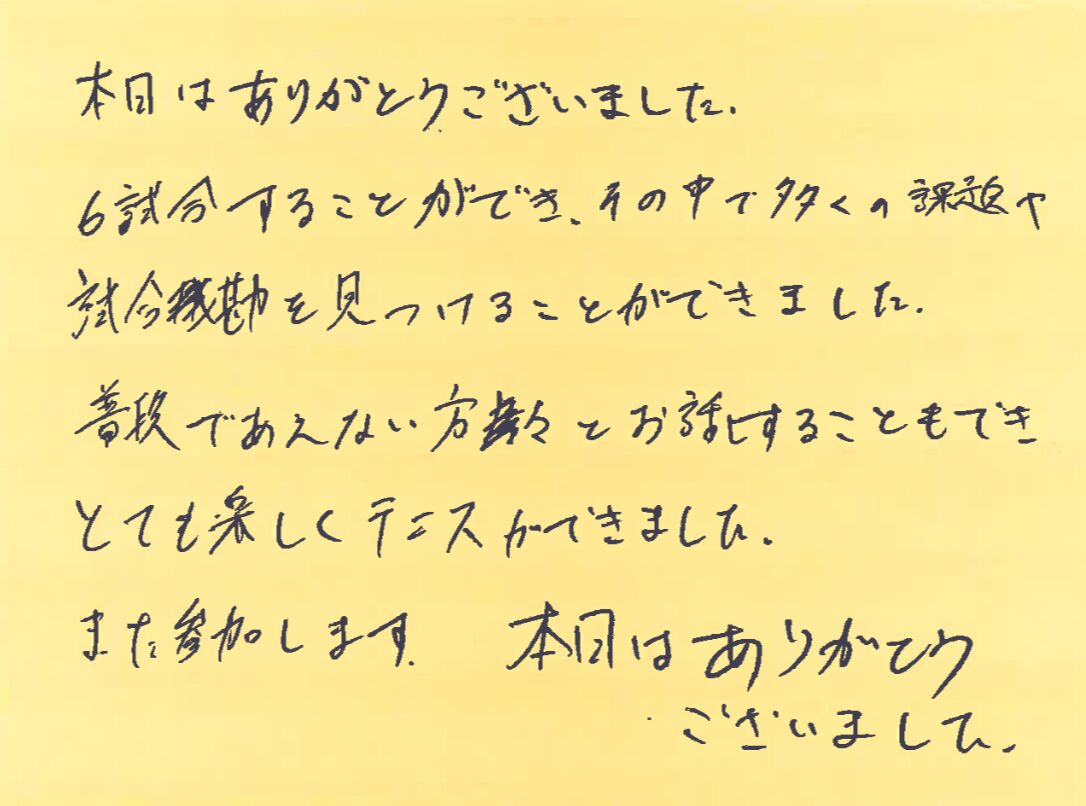 本日はありがとうございました.
6試合することができ、その中で多くの課題や
試合勘を見つけることができました.
普段であえない方々とお話しすることもでき
とても楽しくテニスができました.
また参加します. 本日はありがとう
ございました.